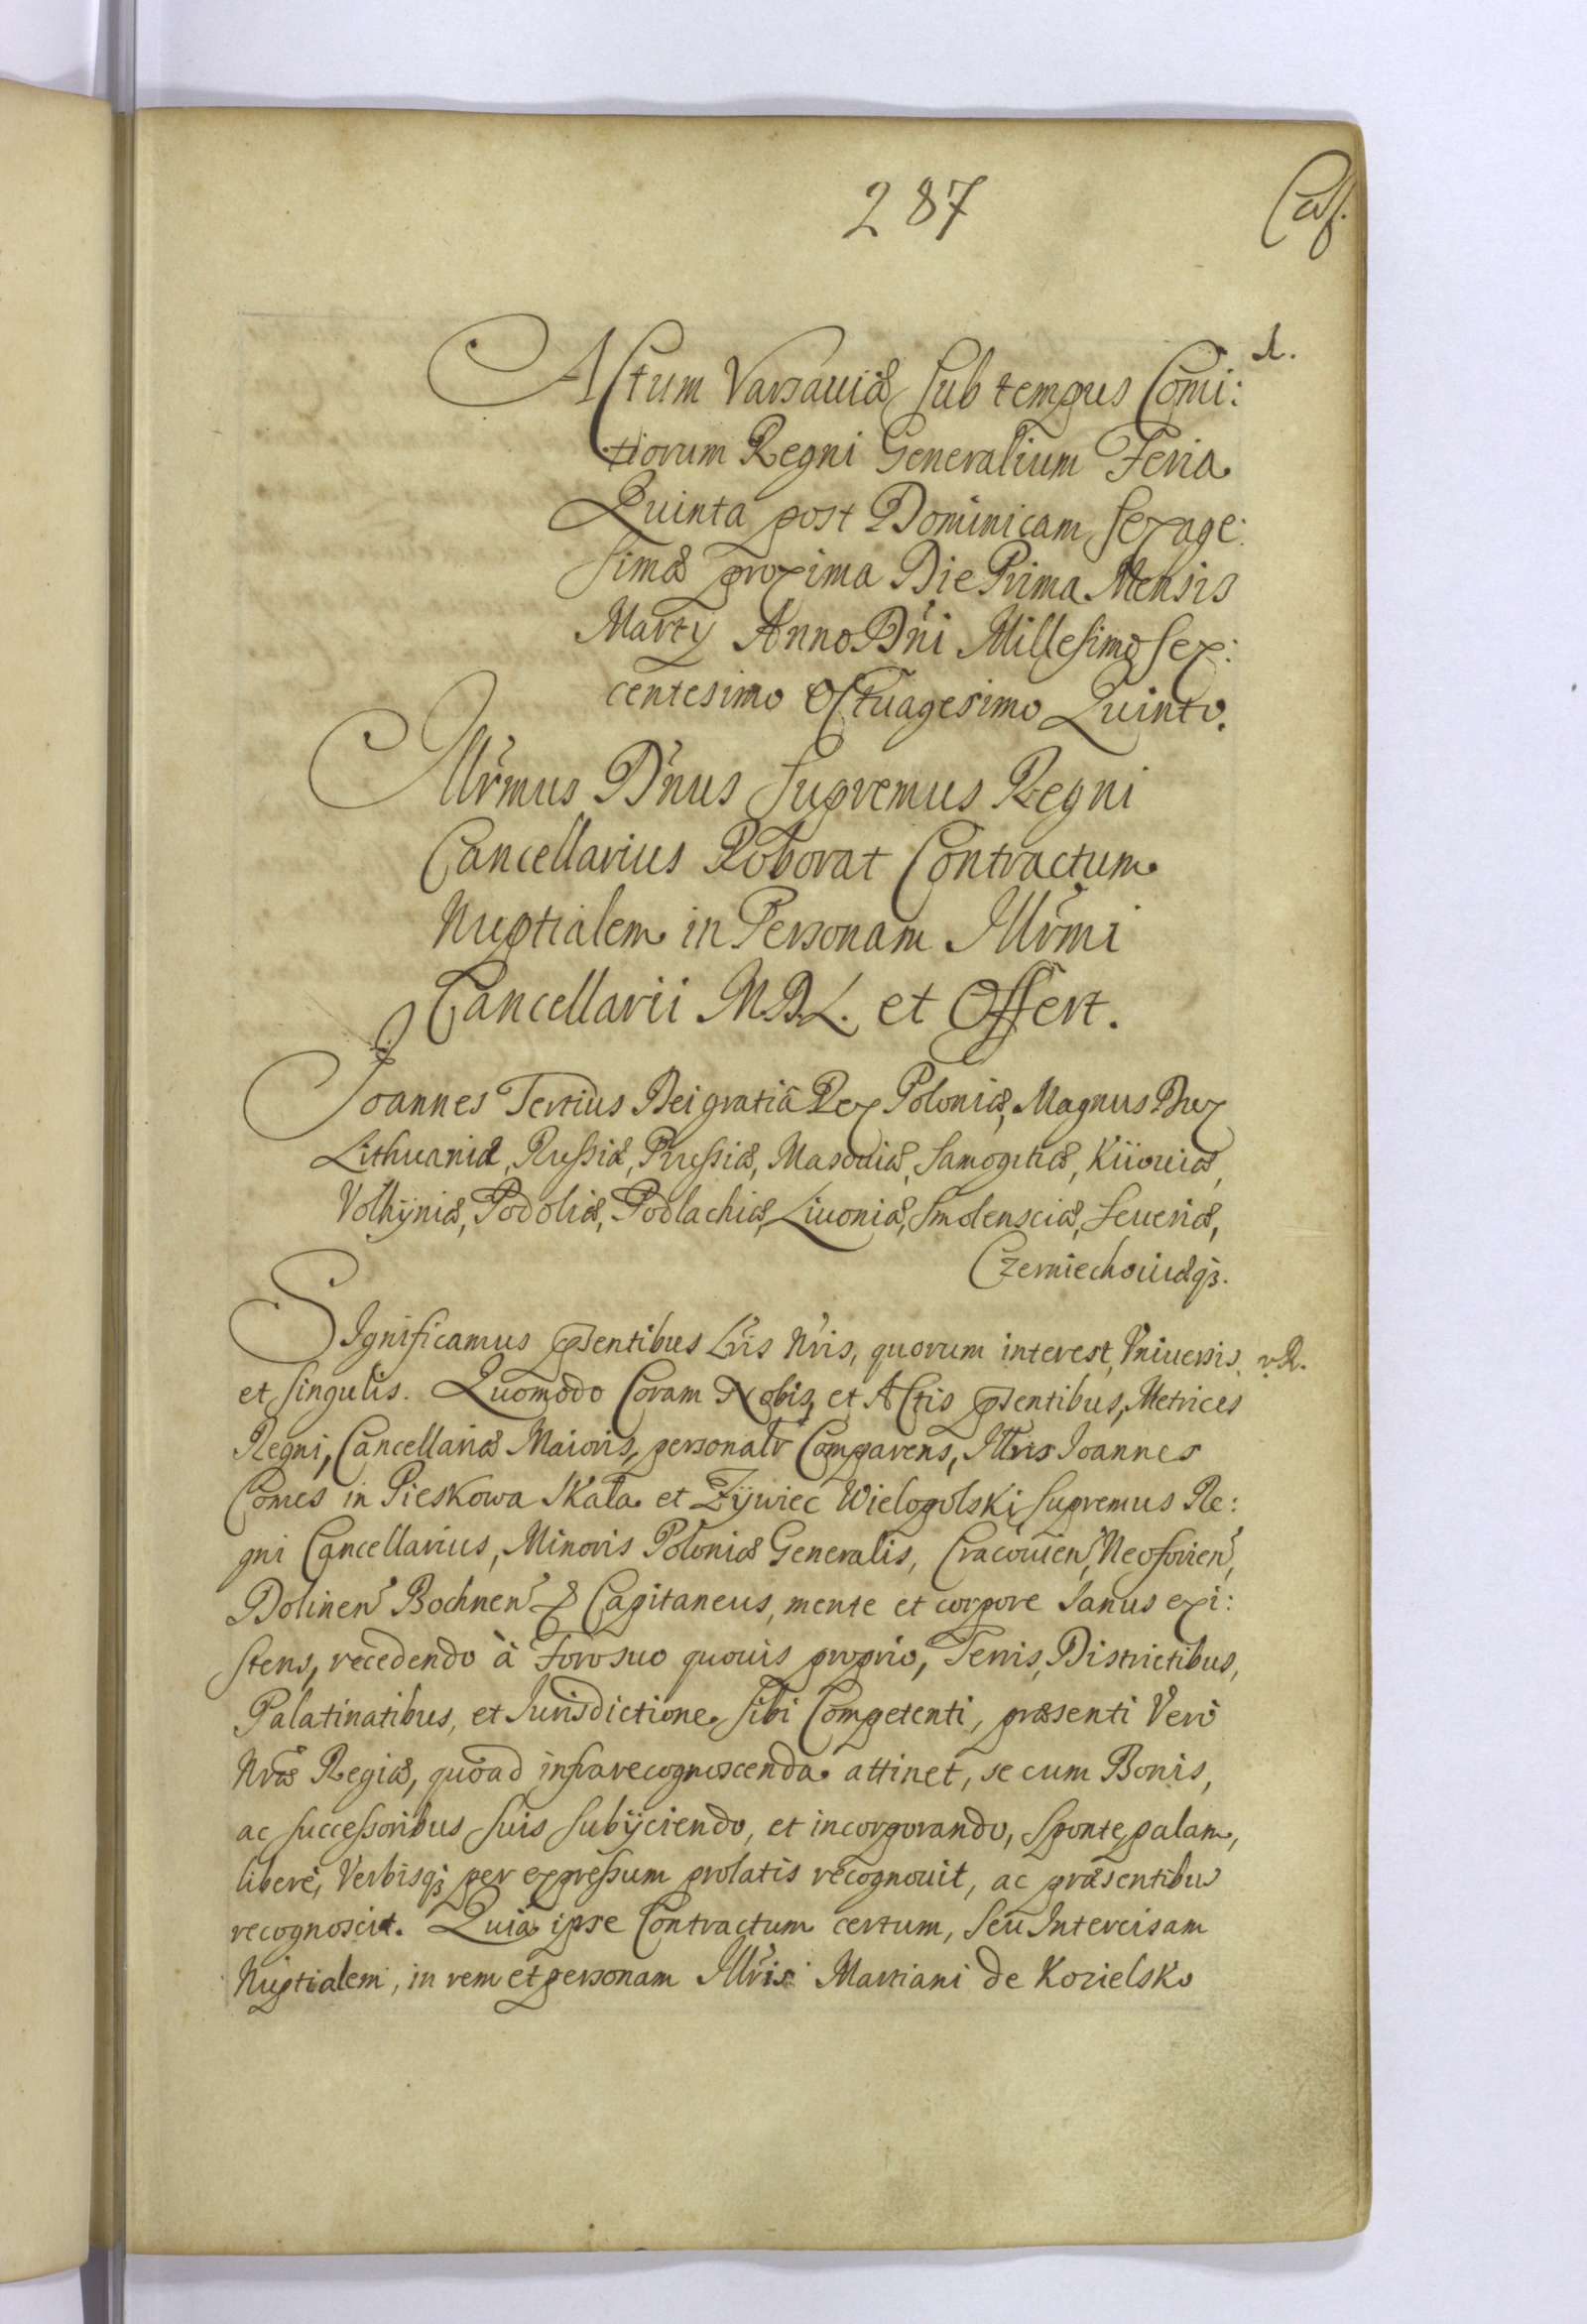 287
Actum Varsauiæ sub tempus Comi:
tiorum Regni Generalium Feria
Quinta post Dominicam Sexage:
simæ proxima Die Prima Mensis
Martÿ Anno Dn̄i Millesimo Sex:
centesimo Octuagesimo Quinto.
Illr̄mus Dn̄us Supremus Regni
Cancellarius Roborat Contractum
Nuptialem in Personam Illr̄mi
Cancellarii M.D.L. et Offert.
Joannes Tertius Dei gratiâ Rex Poloniæ, Magnus Dux
Lithuaniæ, Russiæ, Prussiæ, Masouiæ, Samogitiæ, Kiiouiæ,
Volhÿniæ, Podoliæ, Podlachiæ, Liuoniæ, Smolensciæ, Seueriæ,
Czerniechouiæq3.
Significamus pn̄tibus Lr̄is Nr̄is, quorum interest, Vniuersis
et singulis. Quomodo Coram Nobis, et Actis pn̄tibus, Metrices
Regni, Cancellariæ Maioris, personalr̄ Comparens, Illr̄is Joannes
Comes in Pieskowa Skała et Zÿwiec Wielopolski Supremus Re:
gni Cancellarius, Minoris Poloniæ Generalis, Cracouien̄, Neoforien̄,
Dolinen̄ Bochnen̄ & Capitaneus, mente et corpore sanus exi:
stens, recedendo à Foro suo quouis proprio, Terris, Districtibus,
Palatinatibus, et Jurisdictione sibi Competenti, præsenti Verò
Nr̄æ Regiæ, quòad infrarecognoscenda attinet, se cum Bonis,
ac successoribus suis subÿciendo, et incorporando, sponte, palam,
liberè, Verbisq3 per expressum prolatis recognouit, ac præsentibus
recognoscit. Quia ipse Contractum certum, seu Intercisam
Nuptialem, in rem et personam Illr̄is Martiani de Kozielsko